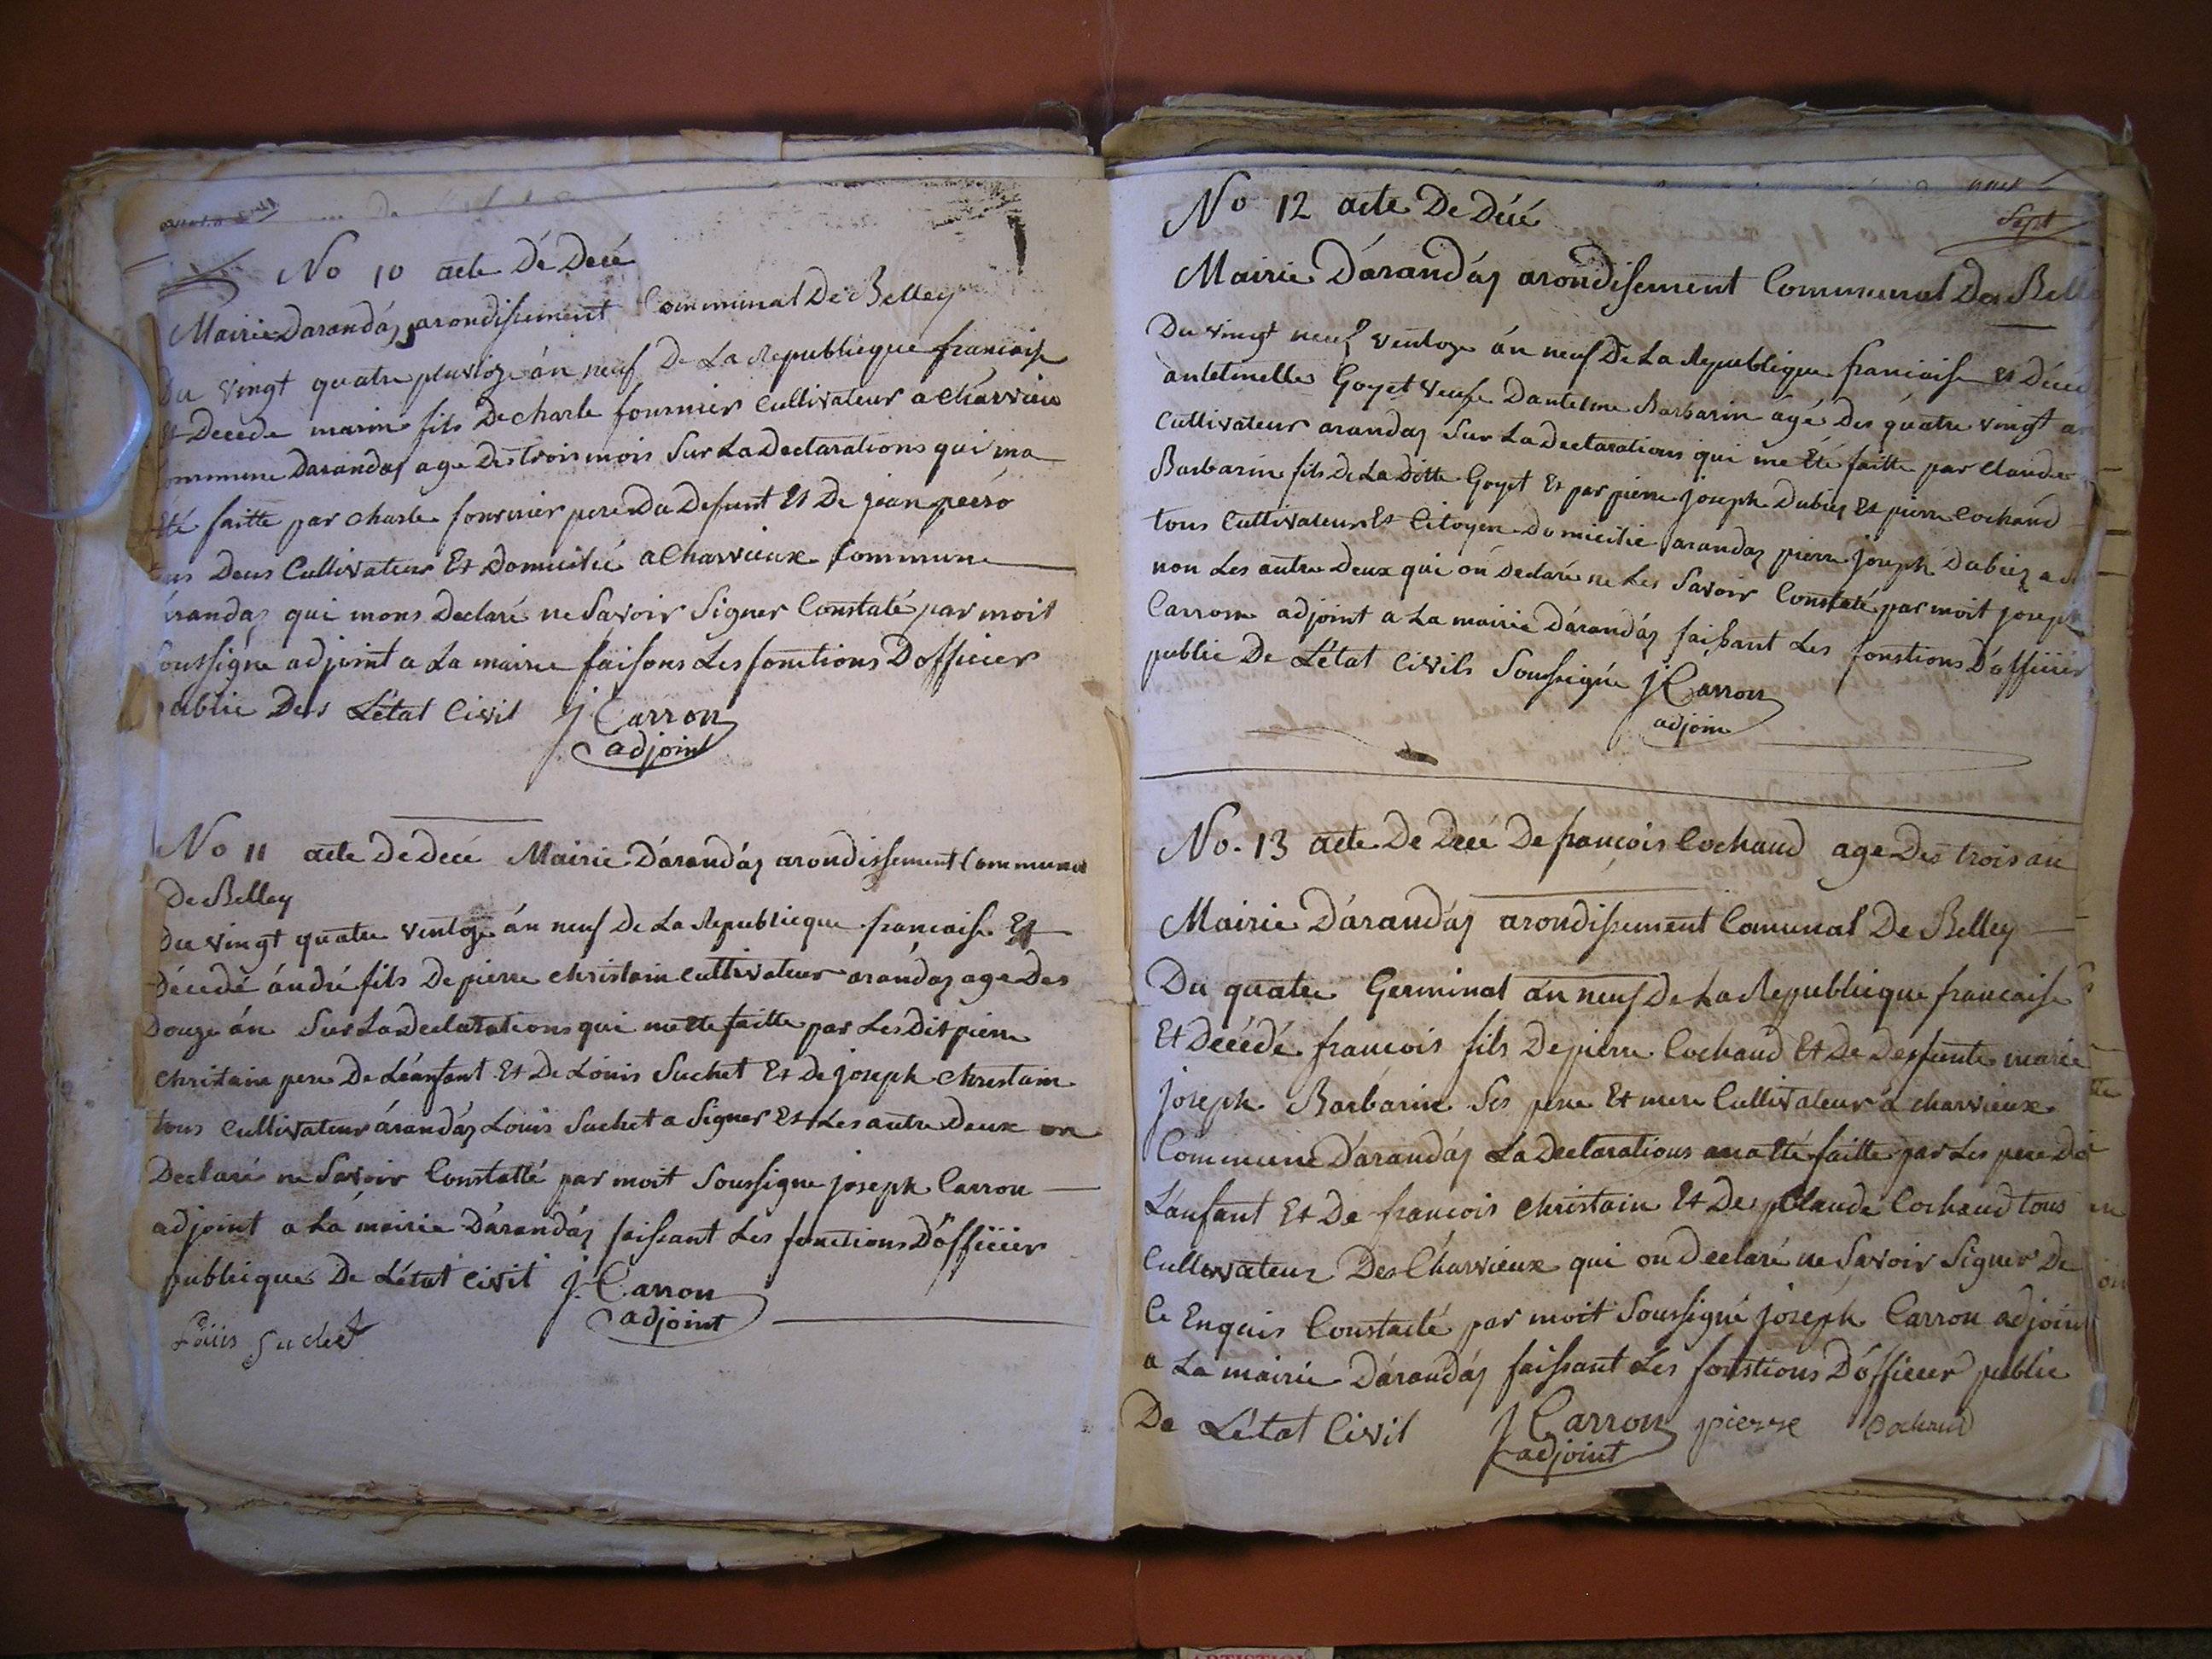 No 10 acte Dé Decé
Mairie Darandaz arondissement Communal De Belley
Du vingt quatre pluvioze án neuf De La Republieque francaise
Et Decede marin fils De charle fournier Cultivateur a Charvieu
ommune Darandas age Des trois mois Sur La Declarations qui ma
Eté faitte par charle fournier pere Du Defunt Et De jean
us Deus Cultivateur Et Domicilié a Charvieux Commune
arandaz qui mons Declaré ne Savoir Signer Constaté par moit
Soussigne adjoint a La mairie faisons Les fonctions Dofficier
public Des L'état Civil J. Carron
adjoint
No 11 acte De Decé Mairie D'arandáz arondissement Communal
De Belley
Du vingt quatre ventoze án neuf De La Republieque francaise Et
Décedé ándré fils De pierre christain cultivateur arandaz age Des
Douze án Sur La Declarations qui mette faitte par Les Dit pierre
christain pere De Léanfant Et De Loüis Suchet Et De joseph christain
tous Cultivateur árandáz Louis Suchet a Signer Et Les autre Deux on
Declaré ne Savoir Constatté par moit Soussigne joseph Carron
adjoint a La mairie D'arandáz faissant Les fonctions D'officier
publieque De L'état Civil J. Carron
adjoint
Loüis Suchet
Sept
No 12 acte De Décé
Mairie D'arandáz arondisement Communal De Belle
Du vingt neuf ventoze án neuf De La Republique francaise Et Décéd
antelmelle Goyet veufe Dantelme Barbarin ágé Des quatre vingt an
Cultivateur arandaz Sur La Declarations qui me Eté faitte par Claude
Barbarin fils De La Ditte Goyet Et par pierre joseph Dubiez Et pierre Cochand
tous Cultivateur Et Citoyen Domicilie arandaz pierre joseph Dubiez a
non Les autre Deux qui ón Declaré ne Les Savoir Constaté par moit joseph
Carron adjoint a La mairie Dárandáz faissant Les fonctions D'officier
public De L'état Civils Soussigné J Carron
adjoin
No. 13 acte De Décé De françois Cochaud age Des trois an
Mairie D'arandáz arondissement Comunal De Belley
Du quatre Germinal án neuf De La Reppublieque francaise
Et Décédé francois fils De pierre Cochaud Et De Deffunte marie
joseph Barbarin Ses pere Et mere Cultivateur á charvieux
Commune D'arandáz La Declarations ma Eté faitte par Les pere De
L'anfant Et De francois Christain Et De Claude Cochaud tous
Cultivateur Des Charvieux qui on Declaré ne Savoir Signer De
Ce Enquis Constaté par moit Soussigné joseph Carron adjoin
a La mairie D'arandáz faissant Les fonctions D'officier public
De L'état Civil J Carron pierre Cochaud
adjoint